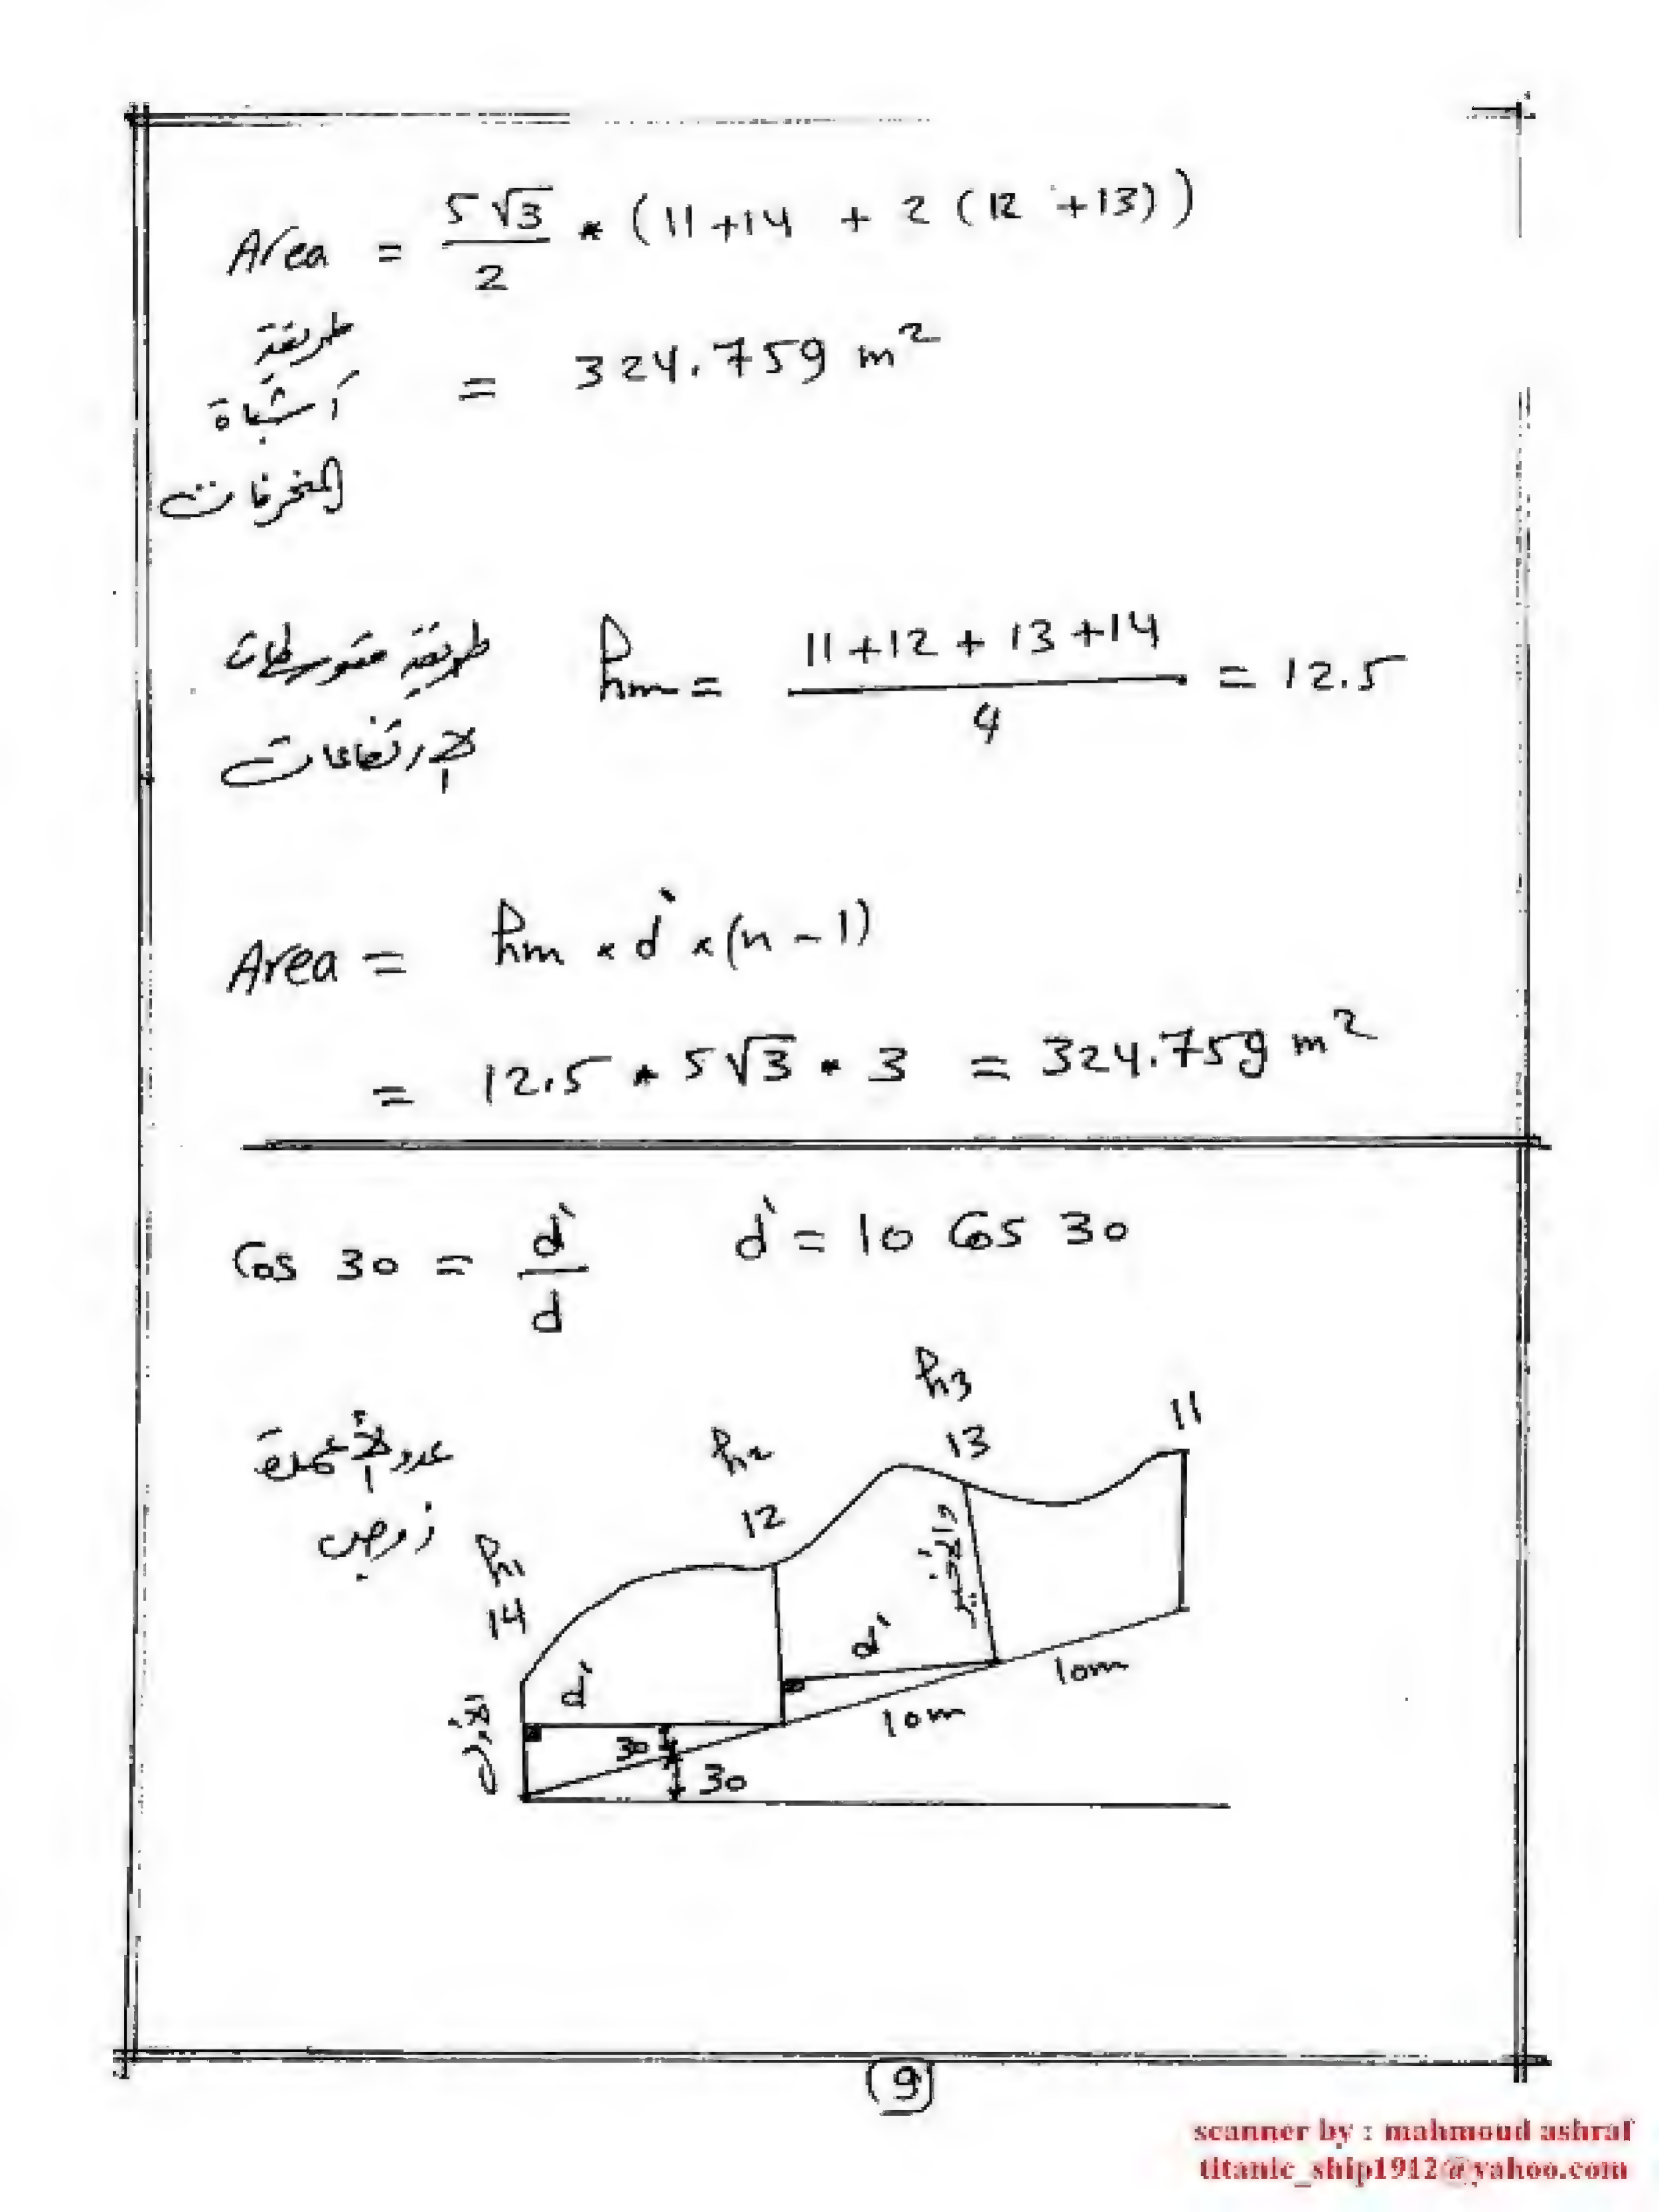 Area = 5√3/2 * (11+14 + 2 (12 +13))
طريقة
أشباة
المنحرفات
= 324.759 m²
طريقة متوسطات
الإرتفاعات
hm = 11+12+13+14/4 = 12.5
Area = hm * d' * (n - 1)
= 12.5 * 5√3 * 3 = 324.759 m²
Cos 30 = d'/d d' = 10 Cos 30
عدد الأعمدة
زوجى
h1
14
h2
12
h3
13
11
الأول
والأخير
d'
d'
30
30
10m
10m
9
scanner by : mahmoud ashraf
titanic_ship1912@yahoo.com